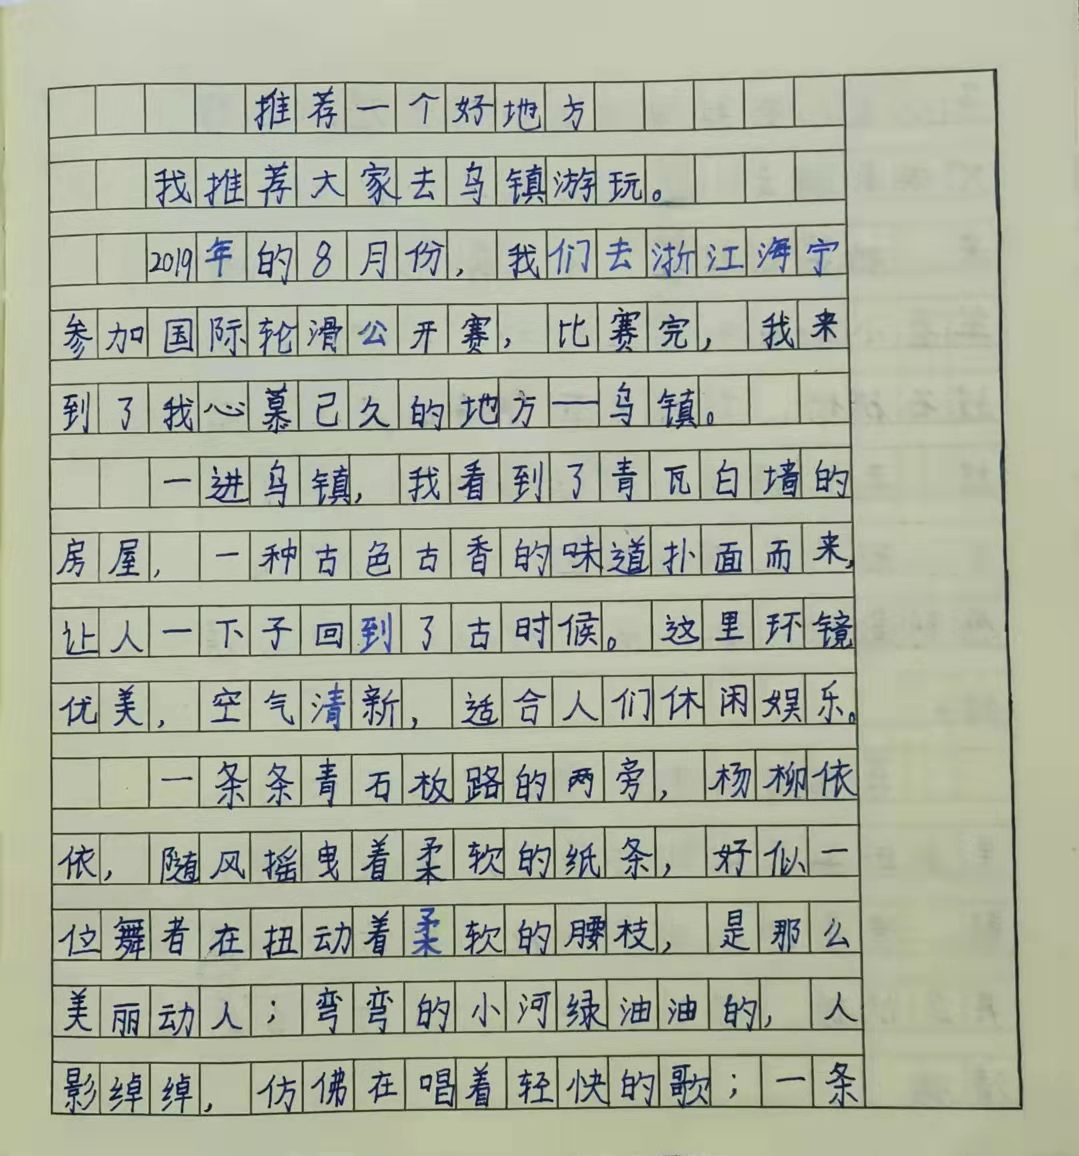 推荐一个好地方
我推荐大家去乌镇游玩。
2019年的8月份，我们去浙江海宁
参加国际轮滑公开赛，比赛完，我来
到了我心慕已久的地方—乌镇。
一进乌镇，我看到了青瓦白墙的
房屋，一种古色古香的味道扑面而来，
让人一下子回到了古时候。这里环镜
优美，空气清新，适合人们休闲娱乐。
一条条青石板路的两旁，杨柳依
依，随风摇曳着柔软的纸条，好似一
位舞者在扭动着柔软的腰枝，是那么
美丽动人；弯弯的小河绿油油的，人
影绰绰，仿佛在唱着轻快的歌；一条